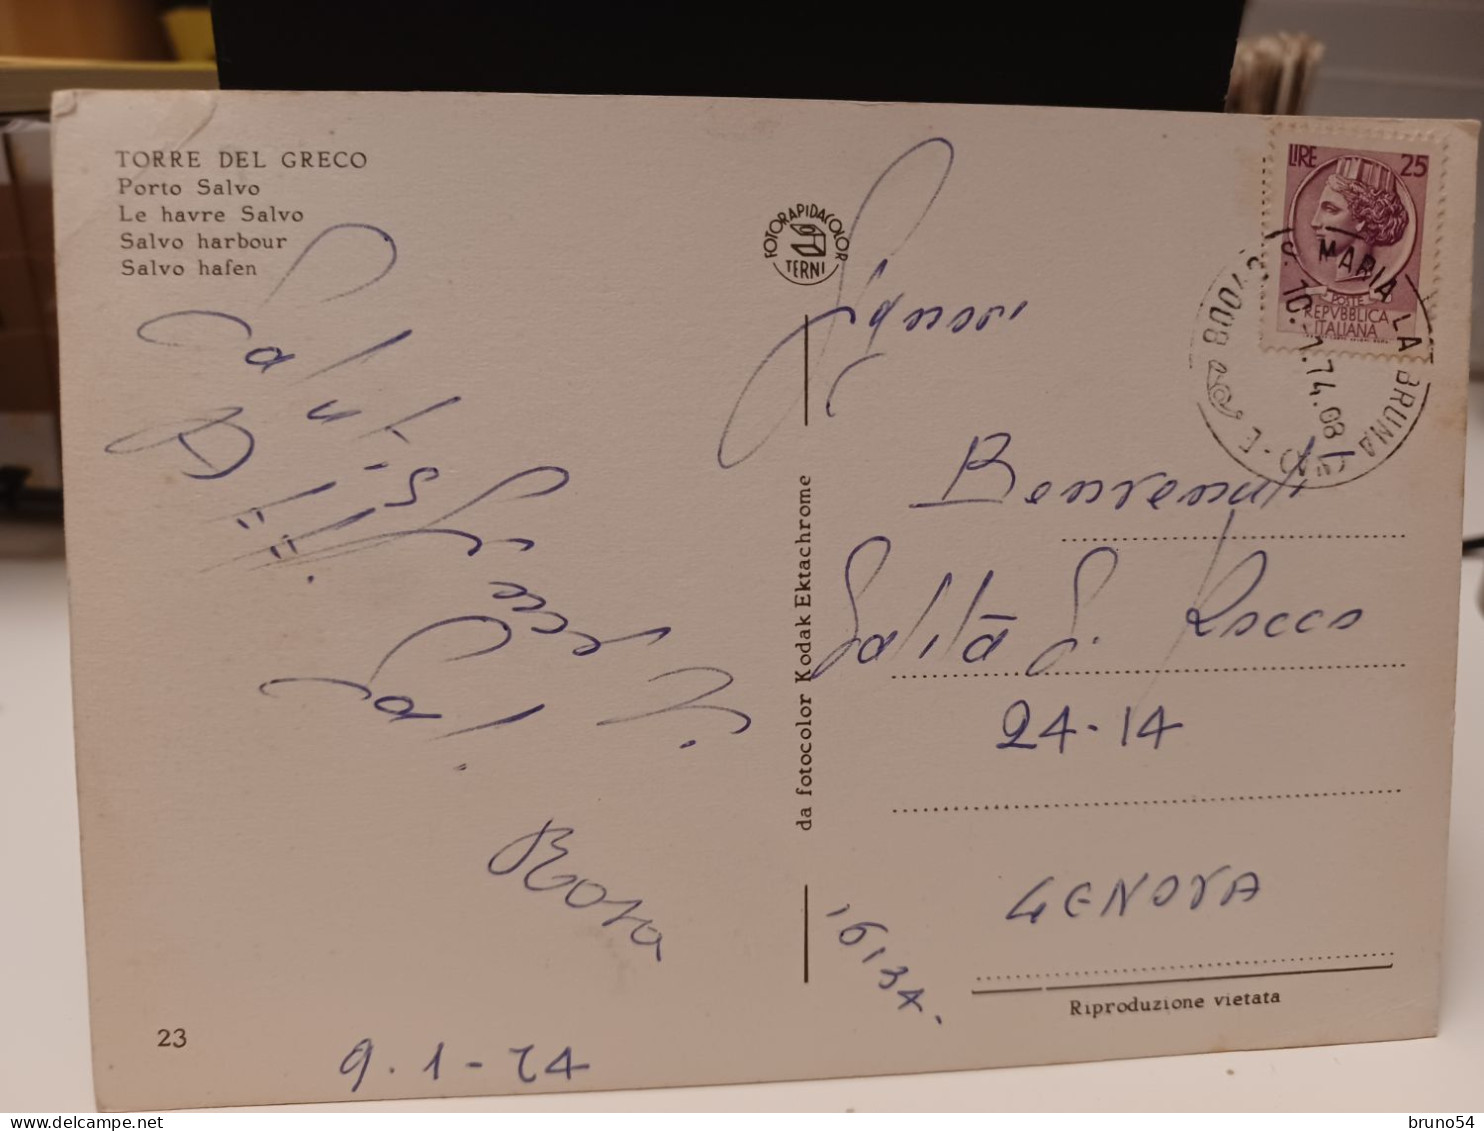 TORRE DEL GRECO
Porto Salvo
Le havre Salvo
Salvo harbour
Salvo hafen
FOTORAPIDACOLOR
TERNI
LIRE 25
POSTE
REPVBBLICA
ITALIANA
80043 S. MARIA LA BRUNA
10.-1.74.08
Signori
Benvenuti
Salità S. Rocco
24-14
GENOVA
16134.
Saluti
da fotocolor Kodak Ektachrome
Riproduzione vietata
23
9.1-74
bruno54